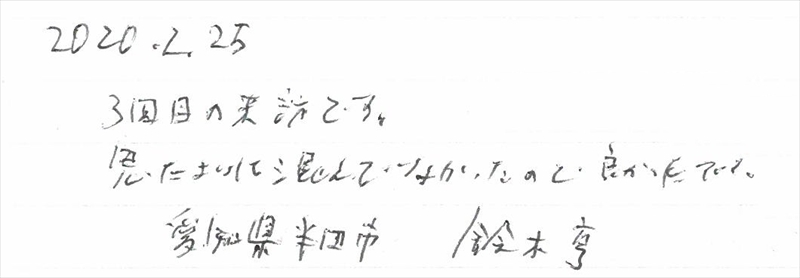 2020.2.25
3回目の来訪です。
思ったよりも混んでいなかったので良かったです。
愛知県半田市 鈴木亨